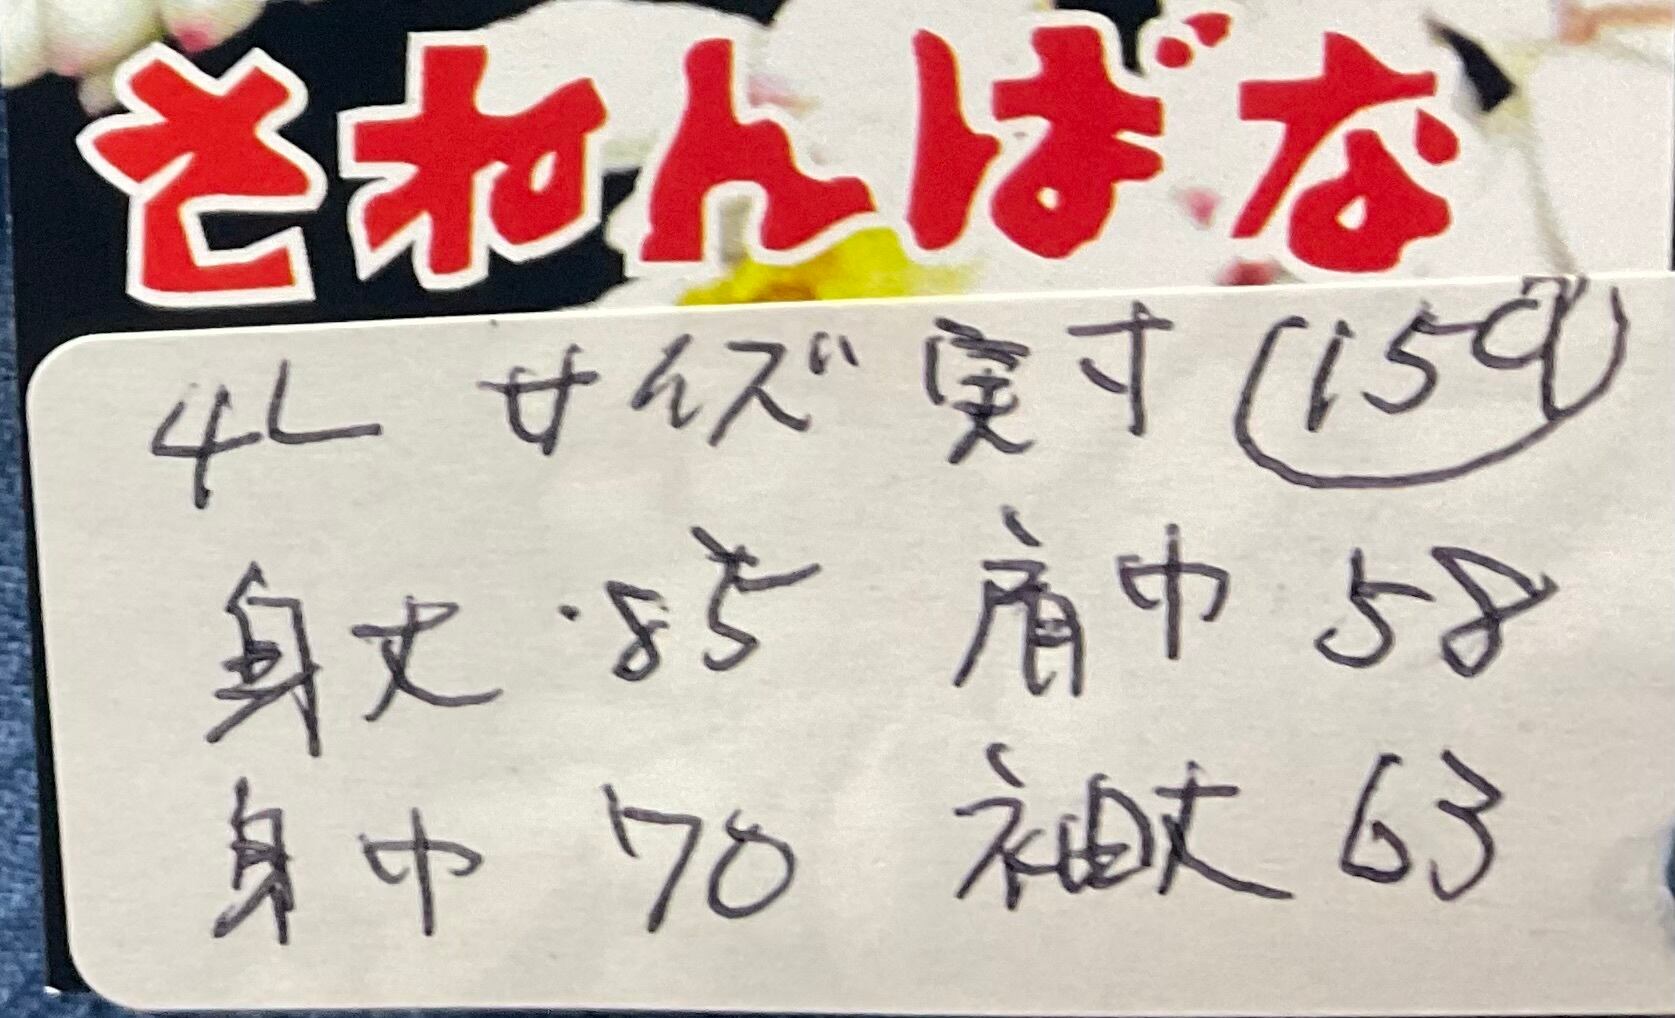 されんばな
4L サイズ 実寸 (159)
身丈・85 肩巾 58
身巾 70 袖丈 63